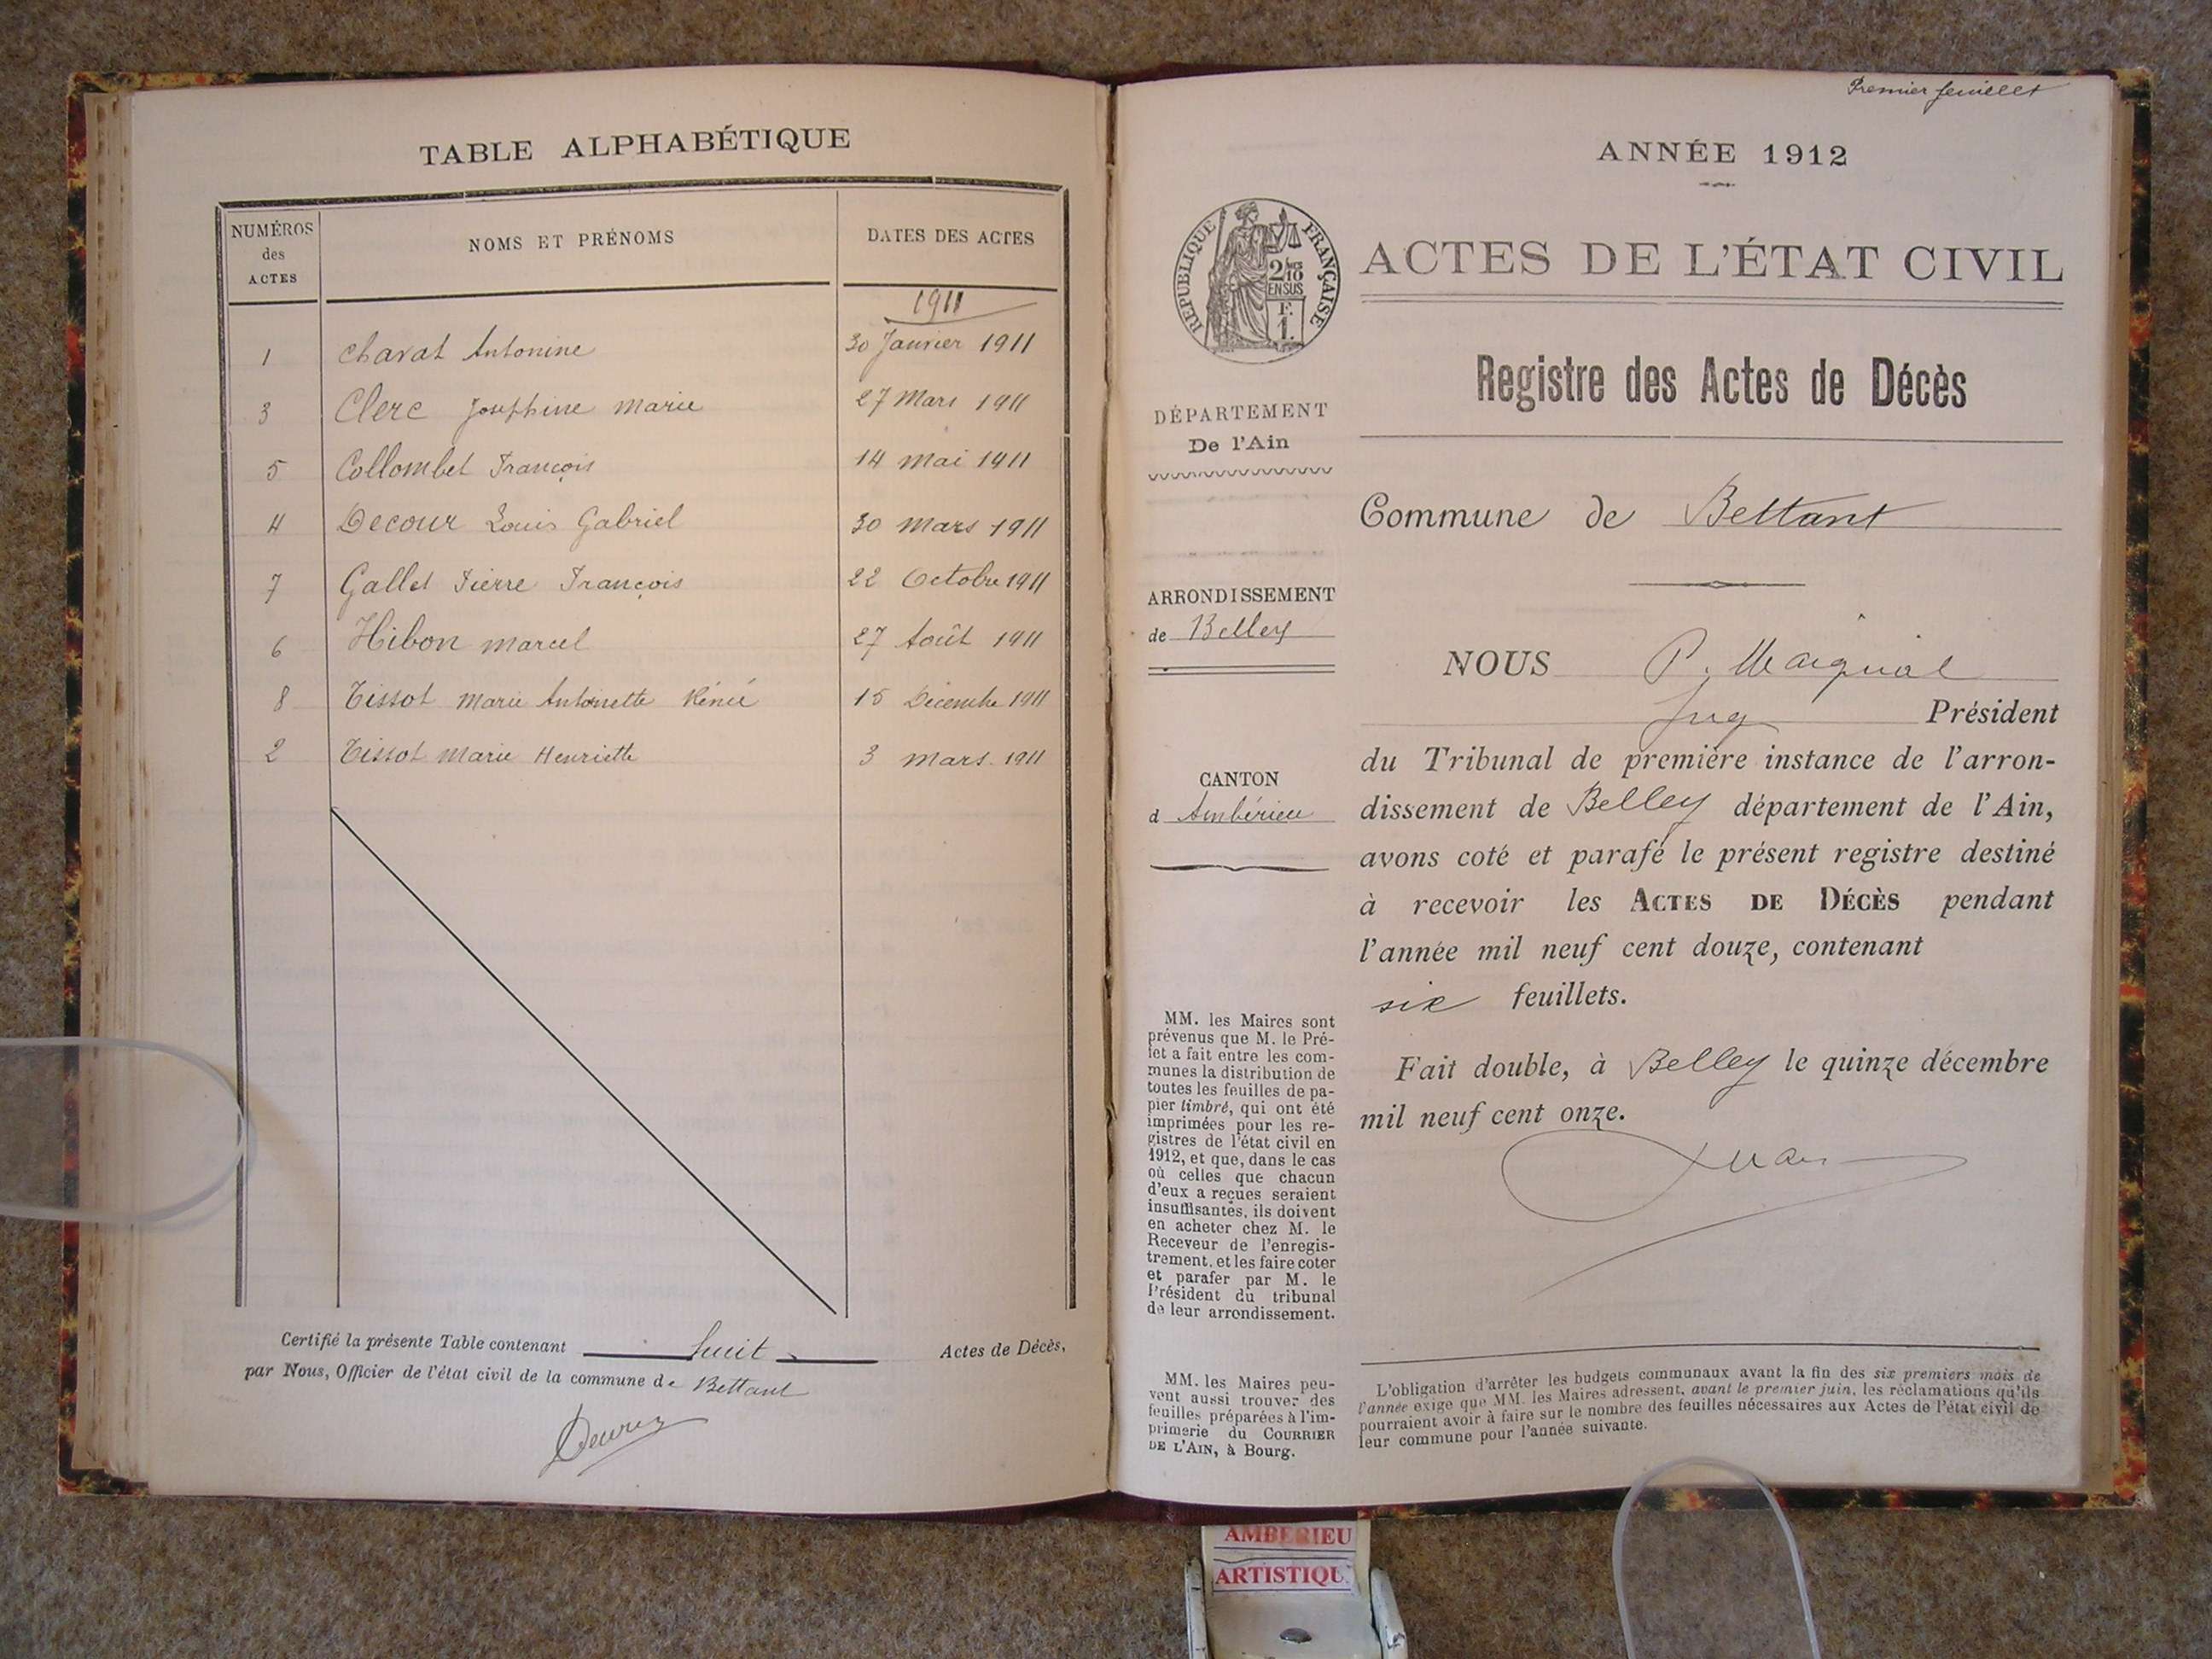 TABLE ALPHABÉTIQUE
NUMÉROS
des
ACTES
NOMS ET PRÉNOMS
DATES DES ACTES
1911
1 Chavat Antonine 30 Janvier 1911
3 Clerc Joséphine Marie 27 Mars 1911
5 Collombet François 14 Mai 1911
4 Decour Louis Gabriel 30 Mars 1911
7 Gallet Pierre François 22 Octobre 1911
6 Hibon Marcel 27 Août 1911
8 Tissot Marie Antoinette Rénée 15 Décembre 1911
2 Tissot Marie Henriette 3 Mars 1911
Certifié la présente Table contenant huit Actes de Décès,
par Nous, Officier de l'état civil de la commune de Bettant
Premier feuillet
ANNÉE 1912
RÉPUBLIQUE FRANÇAISE
2/10
EN SUS
F.
1.
ACTES DE L'ÉTAT CIVIL
Registre des Actes de Décès
DÉPARTEMENT
De l'Ain
Commune de Bettant
ARRONDISSEMENT
de Belley
CANTON
d Ambérieu
MM. les Maires sont
prévenus que M. le Pré-
fet a fait entre les com-
munes la distribution de
toutes les feuilles de pa-
pier timbré, qui ont été
imprimées pour les re-
gistres de l'état civil en
1912, et que, dans le cas
où celles que chacun
d'eux a reçues seraient
insuffisantes, ils doivent
en acheter chez M. le
Receveur de l'enregis-
trement, et les faire coter
et parafer par M. le
Président du tribunal
de leur arrondissement.
MM. les Maires peu-
vent aussi trouver des
feuilles préparées à l'im-
primerie du COURRIER
DE L'AIN, à Bourg.
NOUS P.
Président
du Tribunal de première instance de l'arron-
dissement de Belley département de l'Ain,
avons coté et parafé le présent registre destiné
à recevoir les ACTES DE DÉCÈS pendant
l'année mil neuf cent douze, contenant
six feuillets.
Fait double, à Belley le quinze décembre
mil neuf cent onze.
L'obligation d'arrêter les budgets communaux avant la fin des six premiers mois de
l'année exige que MM. les Maires adressent, avant le premier juin, les réclamations qu'ils
pourraient avoir à faire sur le nombre des feuilles nécessaires aux Actes de l'état civil de
leur commune pour l'année suivante.
AMBERIEU
ARTISTIQU